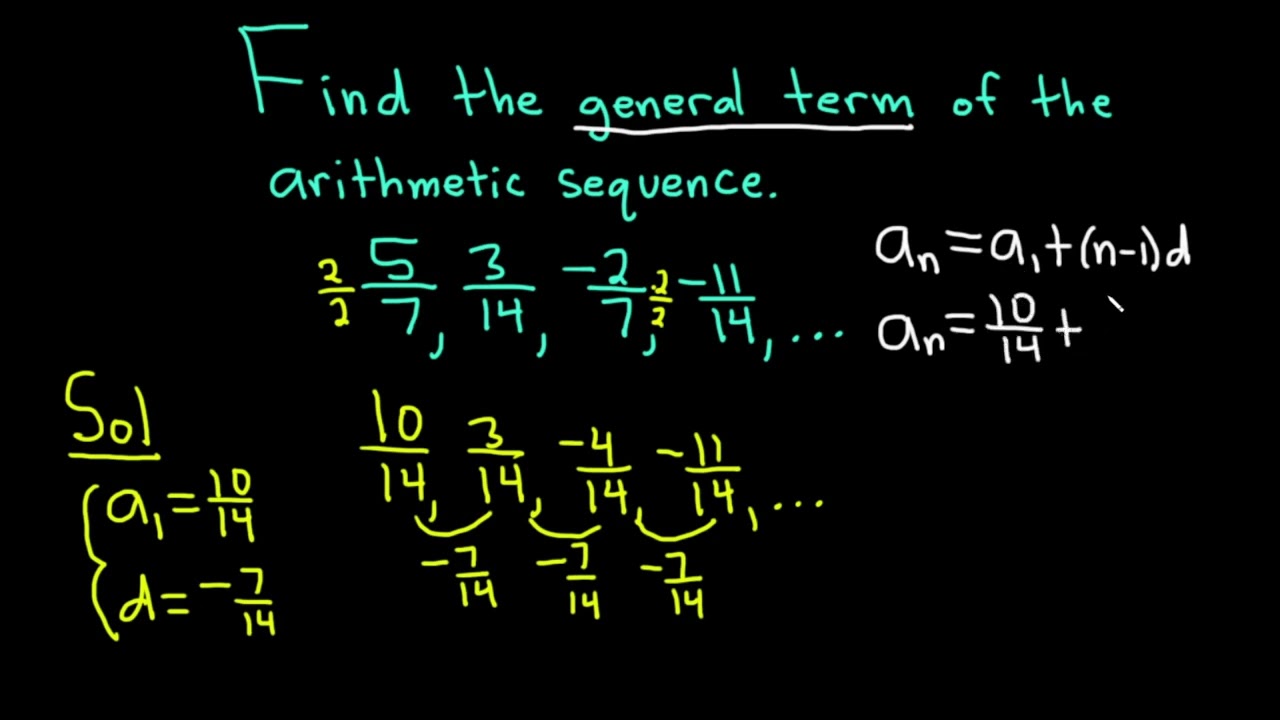 Find the general term of the
arithmetic sequence.
2/2 5/7, 3/14, -2/7, 2/2 -11/14, ...
aₙ = a₁ + (n-1)d
aₙ = 10/14 +
Sol
10/14, 3/14, -4/14, -11/14, ...
-7/14 -7/14 -7/14
a₁ = 10/14
d = -7/14